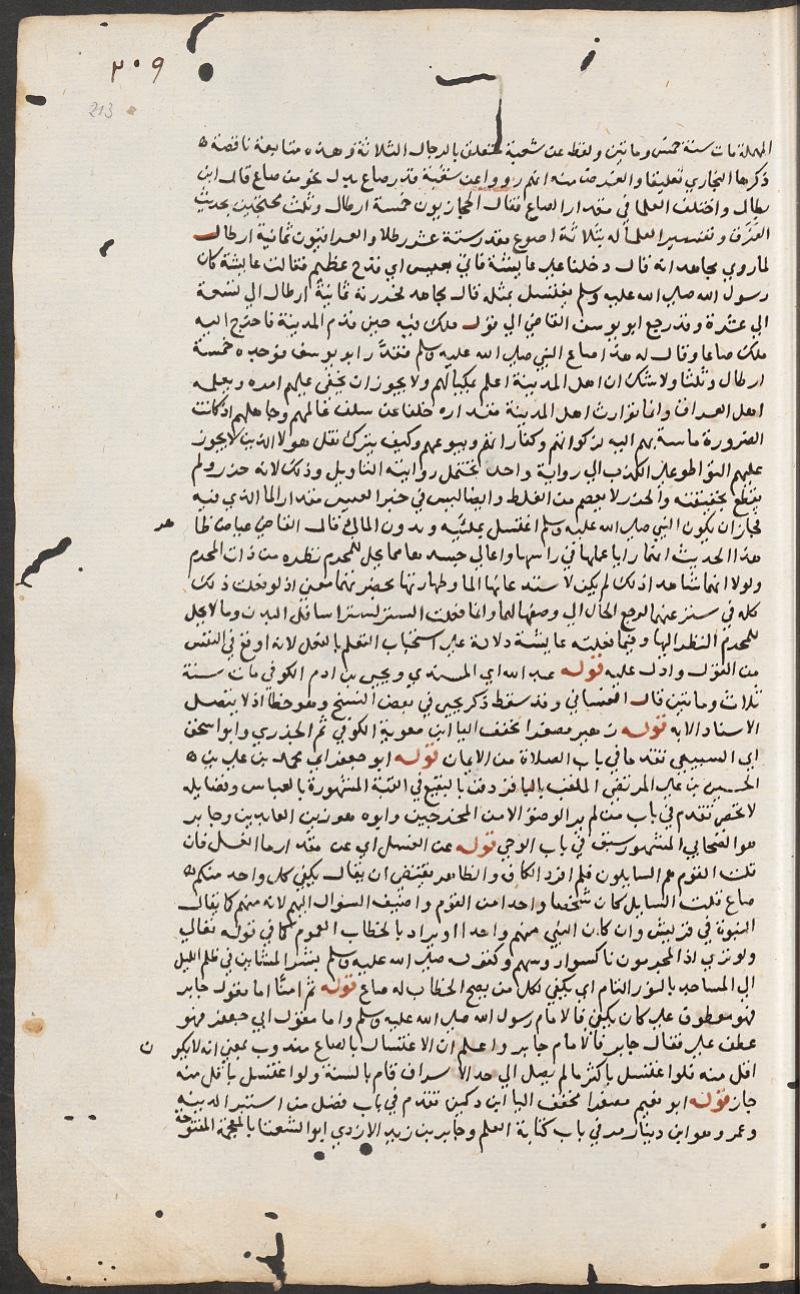 ٢٠٩
213
المهملة مات سنة خمس ومايتين ولفظ عن شعبة متعلق بالرجال الثلاثة وهذه متابعة ناقصة ه
ذكرها البخاري تعليقا والغرض منه انهم رووا عن شعبة قدر صاع بدل نحو من صاع قال ابن
بطال واختلف العلما في مقدار الصاع فقال الحجازيون خمسة ارطال وثلث محتجين بحديث
الفرق وتفسير العلما له بثلاثة اصوع مقدر ستة عشر رطلا والعراقيون ثمانية ارطال
لما روي مجاهد انه قال دخلنا علي عايشة فاتي بعس اي قدح عظيم فقالت عايشة كان
رسول الله صلي الله عليه وسلم يغتسل بمثله قال مجاهد فحزرته ثمانية ارطال الي تسعة
الي عشرة وقد رجع ابو يوسف القاضي الي قول ملك فيه حين قدم المدينة فاخرج اليه
ملك صاعا وقال له هذا صاع النبي صلي الله عليه وسلم فقدر ابو يوسف فوجده خمسة
ارطال وثلثا ولا شك ان اهل المدينة اعلم بمكيالهم ولا يجوز ان يخفي عليهم امره ويعلمه
اهل العراق وانما توارث اهل المدينة مقداره خلفا عن سلف عالمهم وجاهلهم اذ كانت
الضرورة ماسة بهم اليه لزكواتهم وكفاراتهم وبيوعهم وكيف يترك نقل هولا الذين لا يجوز
عليهم التواطو علي الكذب الي رواية واحد تحتمل روايته التاويل وذلك لانه حزر ولم
يقطع بحقيقته والحزر لا يعصم من الغلط وايضا ليس في خبر العس مقدار الما الذي فيه
فجاز ان يكون النبي صلي الله عليه وسلم اغتسل بملئيه وبدون المالي قال القاضي عياض ظا
هر
هذا الحديث انهما رايا عملها في راسها واعالي جسدها مما يحل للمحرم نظره من ذات المحرم
ولولا انهما شاهدا ذلك لم يكن لاستدعائها الما وطهارتها بحضرتهما معني اذ لو فعلت ذلك
كله في ستر عنهما لرجع الحال الي وصفها لهما وانما فعلت الستر لستر اسافل البدن وما لا يحل
للمحرم النظر اليها وفيما فعلته عايشة دلالة علي استحباب التعلم بالفعل لانه اوقع في النفس
من القول وادل عليه قوله عبد الله اي المسندي ويحيي بن ادم الكوفي مات سنة
ثلاث ومايتين قال الغساني وقد سقط ذكر يحيي في بعض النسخ وهو خطا اذ لا يتصل
الاسناد الا به قوله زهير مصغرا مخفف اليا ابن معوية الكوفي ثم الجزري وابو اسحق
اي السبيعي تقدما في باب الصلاة من الايمان قوله ابو جعفر اي محمد بن علي بن ه
الحسين بن علي المرتضي الملقب بالباقر دفن بالبقيع في القبة المشهورة بالعباس وفضايله
لا تحصي تقدم في باب من لم ير الوضو الا من المخرجين وابوه هو زين العابدين وجابر
هو الصحابي المشهور سبق في باب الوحي قوله عن الغسل اي عن مقدار ما الغسل فان
قلت القوم هم السايلون فلم افرد الكاف والظاهر يقتضي ان يقال يكفي كل واحد منكم ه
صاع قلت السايل كان شخصا واحدا من القوم واضيف السوال اليهم لانه منهم كما يقال
النبوة في قريش وان كان النبي منهم واحدا او يراد بالخطاب العموم كما في قوله تعالي
ولو تري اذ المجرمون ناكسوا روسهم وكقوله صلي الله عليه وسلم بشر المشايين في ظلم الليل
الي المساجد بالنور التام اي يكفي لكل من يصح الخطاب له صاع قوله ثم امنا اما مقول جابر
فهو معطوف علي كان يكفي فالامام رسول الله صلي الله عليه وسلم واما مقول ابي جعفر فهو
عطف علي فقال جابر فالامام جابر واعلم ان الاغتسال بالصاع مندوب بمعني انه لا يكو
ن
اقل منه فلو اغتسل باكثر ما لم يصل الي حد الاسراف قام بالسنة ولو اغتسل باقل منه
جاز قوله ابو نعيم مصغرا مخفف اليا ابن دكين تقدم في باب فضل من استبرا لدينه
وعمرو هو ابن دينار مر في باب كتابة العلم وجابر بن زيد الازدي ابو الشعثا بالمعجمة المفتوحة